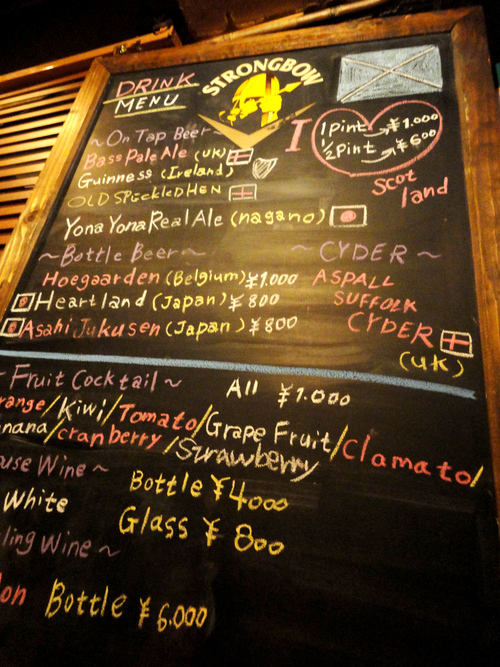 DRINK
MENU
STRONGBOW
~On Tap Beer~
Bass Pale Ale (UK)
Guinness (Ireland)
OLD SPECKLED HEN
YonaYona Real Ale (nagano)
I
1 pint → ¥1.000
½ pint → ¥600
Scot
land
~Bottle Beer~
Hoegaarden (Belgium) ¥1000
Heartland (Japan) ¥800
Asahi Jukusen (Japan) ¥800
~CYDER~
ASPALL
SUFFOLK
CYDER
(UK)
Fruit Cocktail~
All ¥1.000
range/Kiwi/Tomato/Grape Fruit/Clamato/
nana/cranberry/Strawberry
use Wine~
Bottle ¥4000
White Glass ¥800
ling Wine~
on Bottle ¥6.000